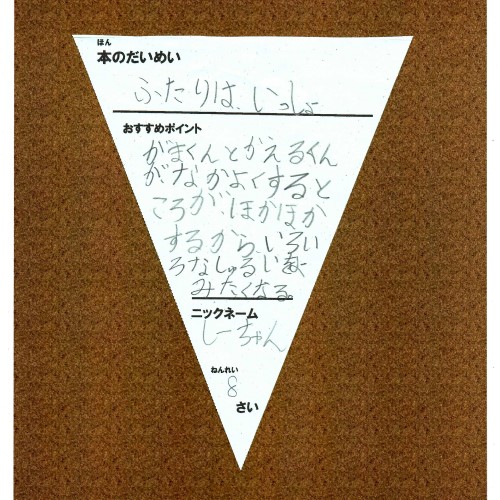 ほん
本のだいめい
ふたりは、いっしょ
おすすめポイント
がまくんとかえるくん
が、なかよくすると
ころが、ほかほか
するから、いろい
ろなしゅるいを
みたくなる。
ニックネーム
しーちゃん
ねんれい
8
さい